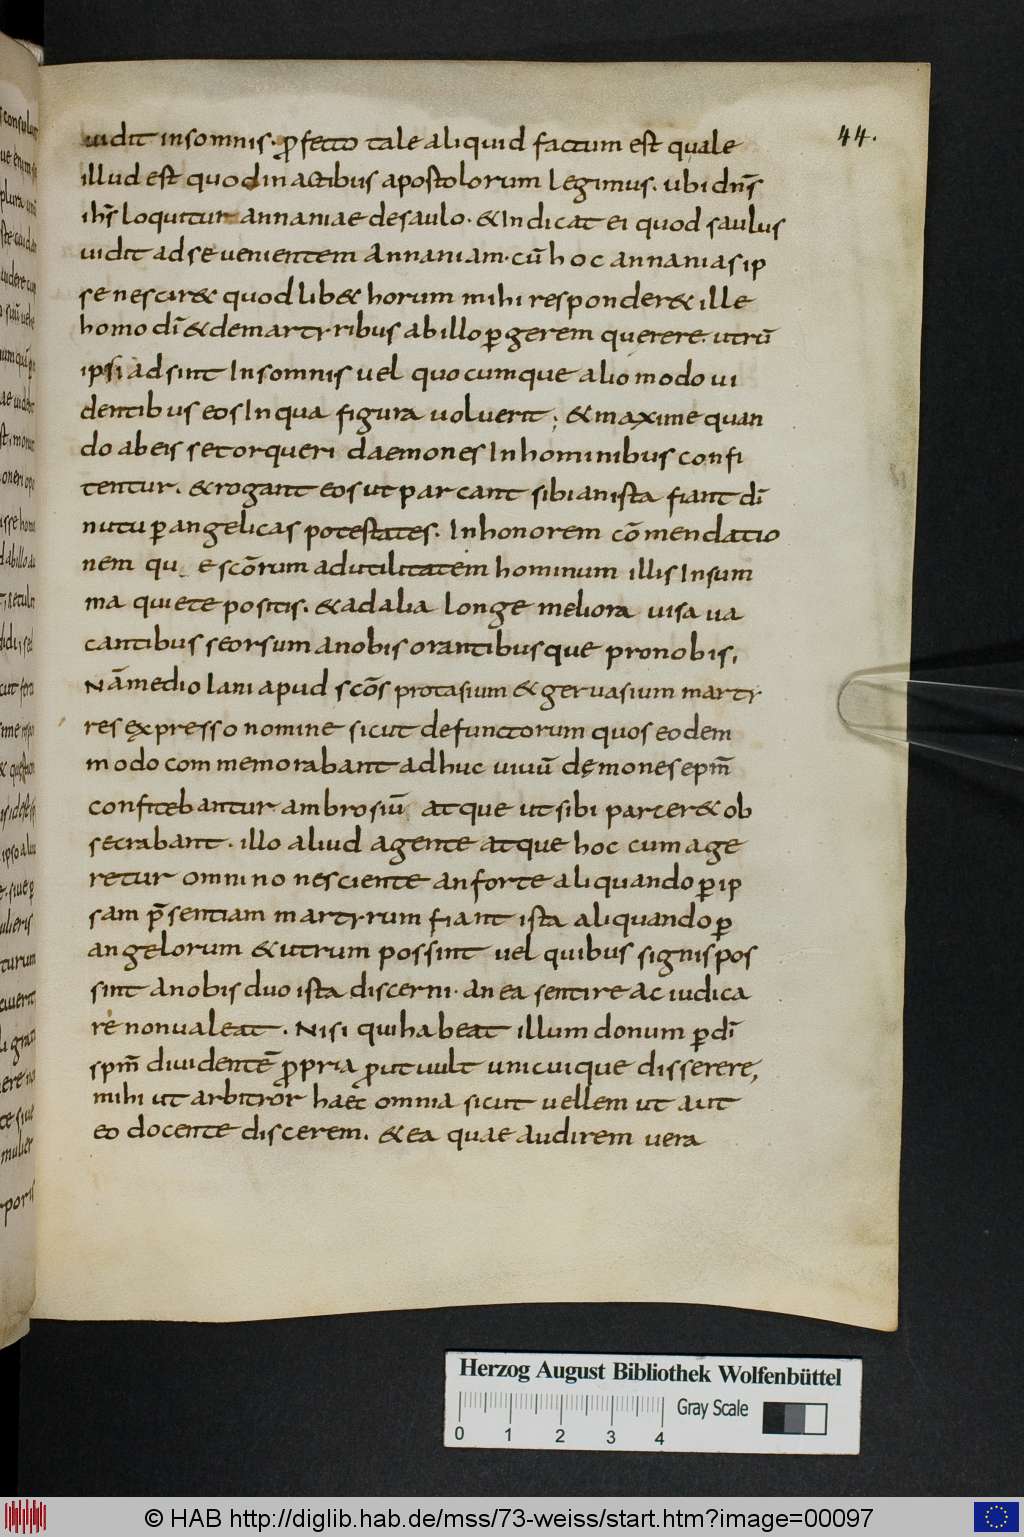 44.
uidit insomnis. ꝓfecto tale aliquid factum est quale
illud est quod in actibus apostolorum legimus. ubi dn̄s
ihs̄ loquitur annaniae desaulo. &Indicat ei quod saulus
uidit adse uenientem Annaniam. cū hoc annaniasip
se nescir& quodlib& horum mihi responder& ille
homo dī &demartyribus abillo ꝑgerem querere. utrū
ipsi adsint Insomnis uel quocumque aliomodo ui
dentibus eos Inqua figura uoluerit; &maxime quan
do abeis setorqueri daemones Inhominibus confi
tentur. &rogant eos ut parcant sibi anista fiant dī
nutu ꝑangelicas potestates. Inhonorem cōmendatio
nem qu e scōrum adutilitatem hominum illis Insum
ma quiete positis. &adalia longe meliora uisa ua
cantibus seorsum anobis orantibusque pronobis,
Nā mediolani apud scōs protasium &geruasium marty
res expresso nomine sicut defunctorum quos eodem
modo commemorabant adhuc uiuū dęmones epm̄
confitebantur ambrosiū atque ut sibi parcer& ob
secrabant. illo aliud agente atque hoc cum age
retur omnino nesciente anforte aliquando ꝑip
sam p̄sentiam martyrum fiant ista aliquando ꝑ
angelorum &utrum possint uel quibus signis pos
sint anobis duo ista discerni. an ea sentire ac iudica
re nonualeat. Nisi qui habeat illum donum ꝑ dī
spm̄ diuidentē ꝓpria ꝓut uult unicuique disserere,
mihi ut arbitror haec omnia sicut uellem ut aut
eo docente discerem. &ea quae audirem uera
Herzog August Bibliothek Wolfenbüttel
Gray Scale
0 1 2 3 4
© HAB http://diglib.hab.de/mss/73-weiss/start.htm?image=00097